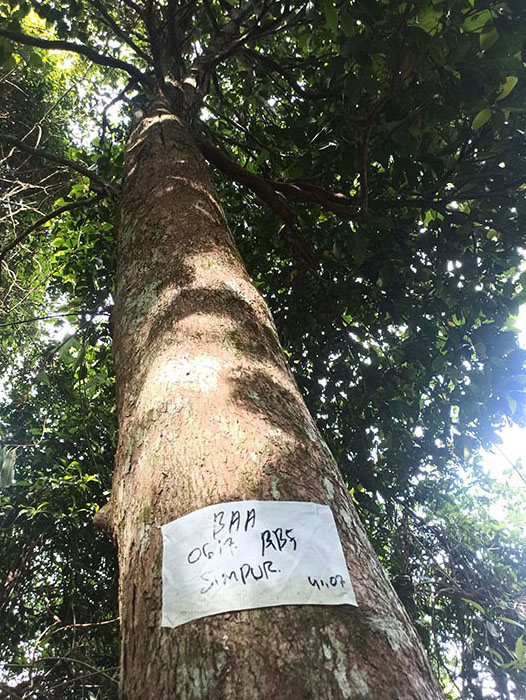 BAA
0617 BBS
SIMPUR.
41.07